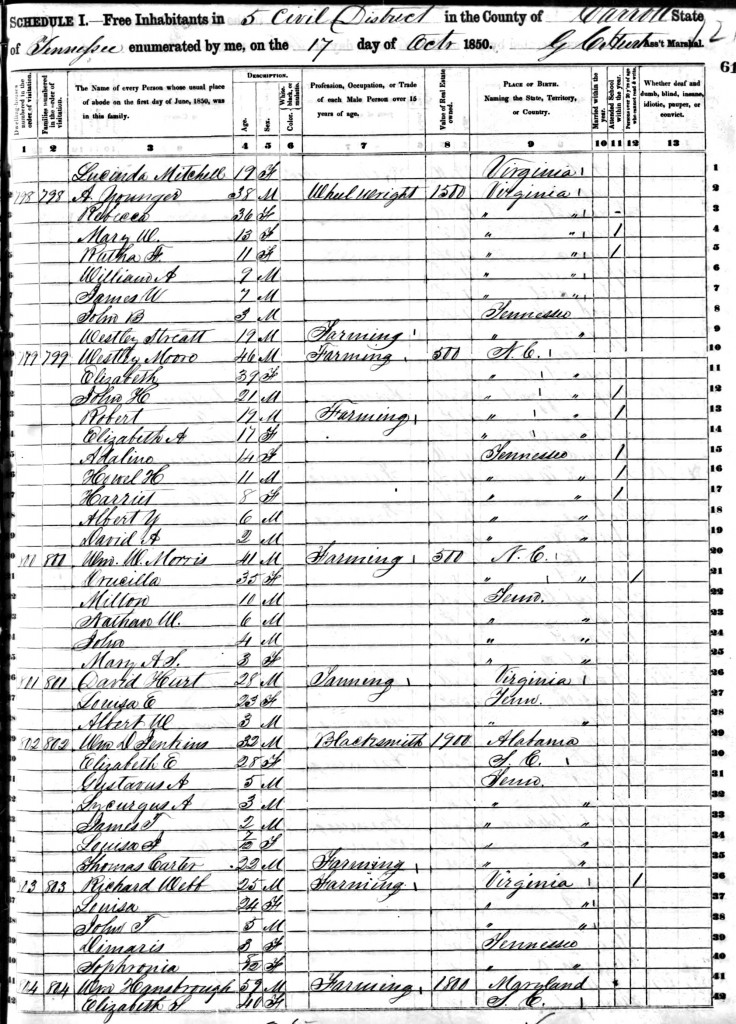 SCHEDULE I.—Free Inhabitants in 5 Civil District in the County of Carroll State
of Tennessee enumerated by me, on the 17 day of Octr 1850. Ass't Marshal.
61
Dwelling-houses numbered in the order of visitation. Families numbered in the order of visitation. The Name of every Person whose usual place of abode on the first day of June, 1850, was in this family. DESCRIPTION. Age. Sex. Color, White, black, or mulatto. Profession, Occupation, or Trade of each Male Person over 15 years of age. Value of Real Estate owned. PLACE OF BIRTH. Naming the State, Territory, or Country. Married within the year. Attended School within the year. Persons over 20 y'rs of age who cannot read & write. Whether deaf and dumb, blind, insane, idiotic, pauper, or convict.
1 2 3 4 5 6 7 8 9 10 11 12 13
Lucinda Mitchell 19 F Virginia 1
798 798 A Younger 38 M Wheel wright 1500 Virginia 2
Rebecca 36 F " " 3
Mary W. 13 F " " 1 4
Ratha F. 11 F " " 1 5
William A 9 M " " 6
James W 7 M " " 7
John B 3 M Tennessee 8
Westley 19 M Farming " " 9
799 799 Westley Moore 46 M Farming 500 N.C. 10
Elizabeth 39 F " " 11
John H 21 M " " 1 12
Robert 19 M Farming " " 1 13
Elizabeth A 17 F " " 14
Adaline 14 F Tennessee 1 15
Howel H 11 M " " 1 16
Harriet 8 F " " 1 17
Albert Y 6 M " " 18
David A 2 M " " 19
800 800 Wm. W. Morris 41 M Farming 500 N.C. 20
Drucilla 35 F " " 1 21
Milton 10 M Tenn. 22
Nathan W. 6 M " " 23
John 4 M " " 24
Mary A.S. 3 F " " 25
801 801 David Hurt 28 M Tanning Virginia 26
Louisa E 23 F Tenn. 27
Albert W 3 M " " 28
802 802 Wm D Jenkins 32 M Blacksmith 1900 Alabama 29
Elizabeth E 28 F S.C. 30
Gustavus A 5 M Tenn. 31
Lycurgus A 3 M " " 32
James T 2 M " " 33
Louisa 7/12 F " " 34
Thomas Carter 22 M Farming " " 35
803 803 Richard Webb 25 M Farming Virginia 1 36
Louisa 24 F " " 37
John T 5 M " " 38
Dimaris 3 F Tennessee 39
Sophronia F " " 40
804 804 Wm Hansbrough 59 M Farming 1800 Maryland 41
Elizabeth S 40 F S.C. 42